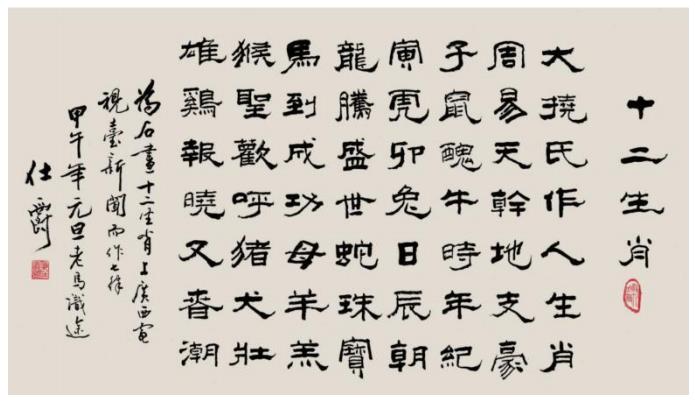 十二生肖
大撓氏作人生肖
周易天幹地支豪
子鼠醜牛時年紀
寅虎卯兔日辰朝
龍騰盛世蛇珠寶
馬到成功母羊羔
猴聖歡呼猪犬壯
雄鷄報曉又春潮
為石畫十二生肖上廣西電
視臺新聞而作七律
甲午年元旦老馬識途
仕